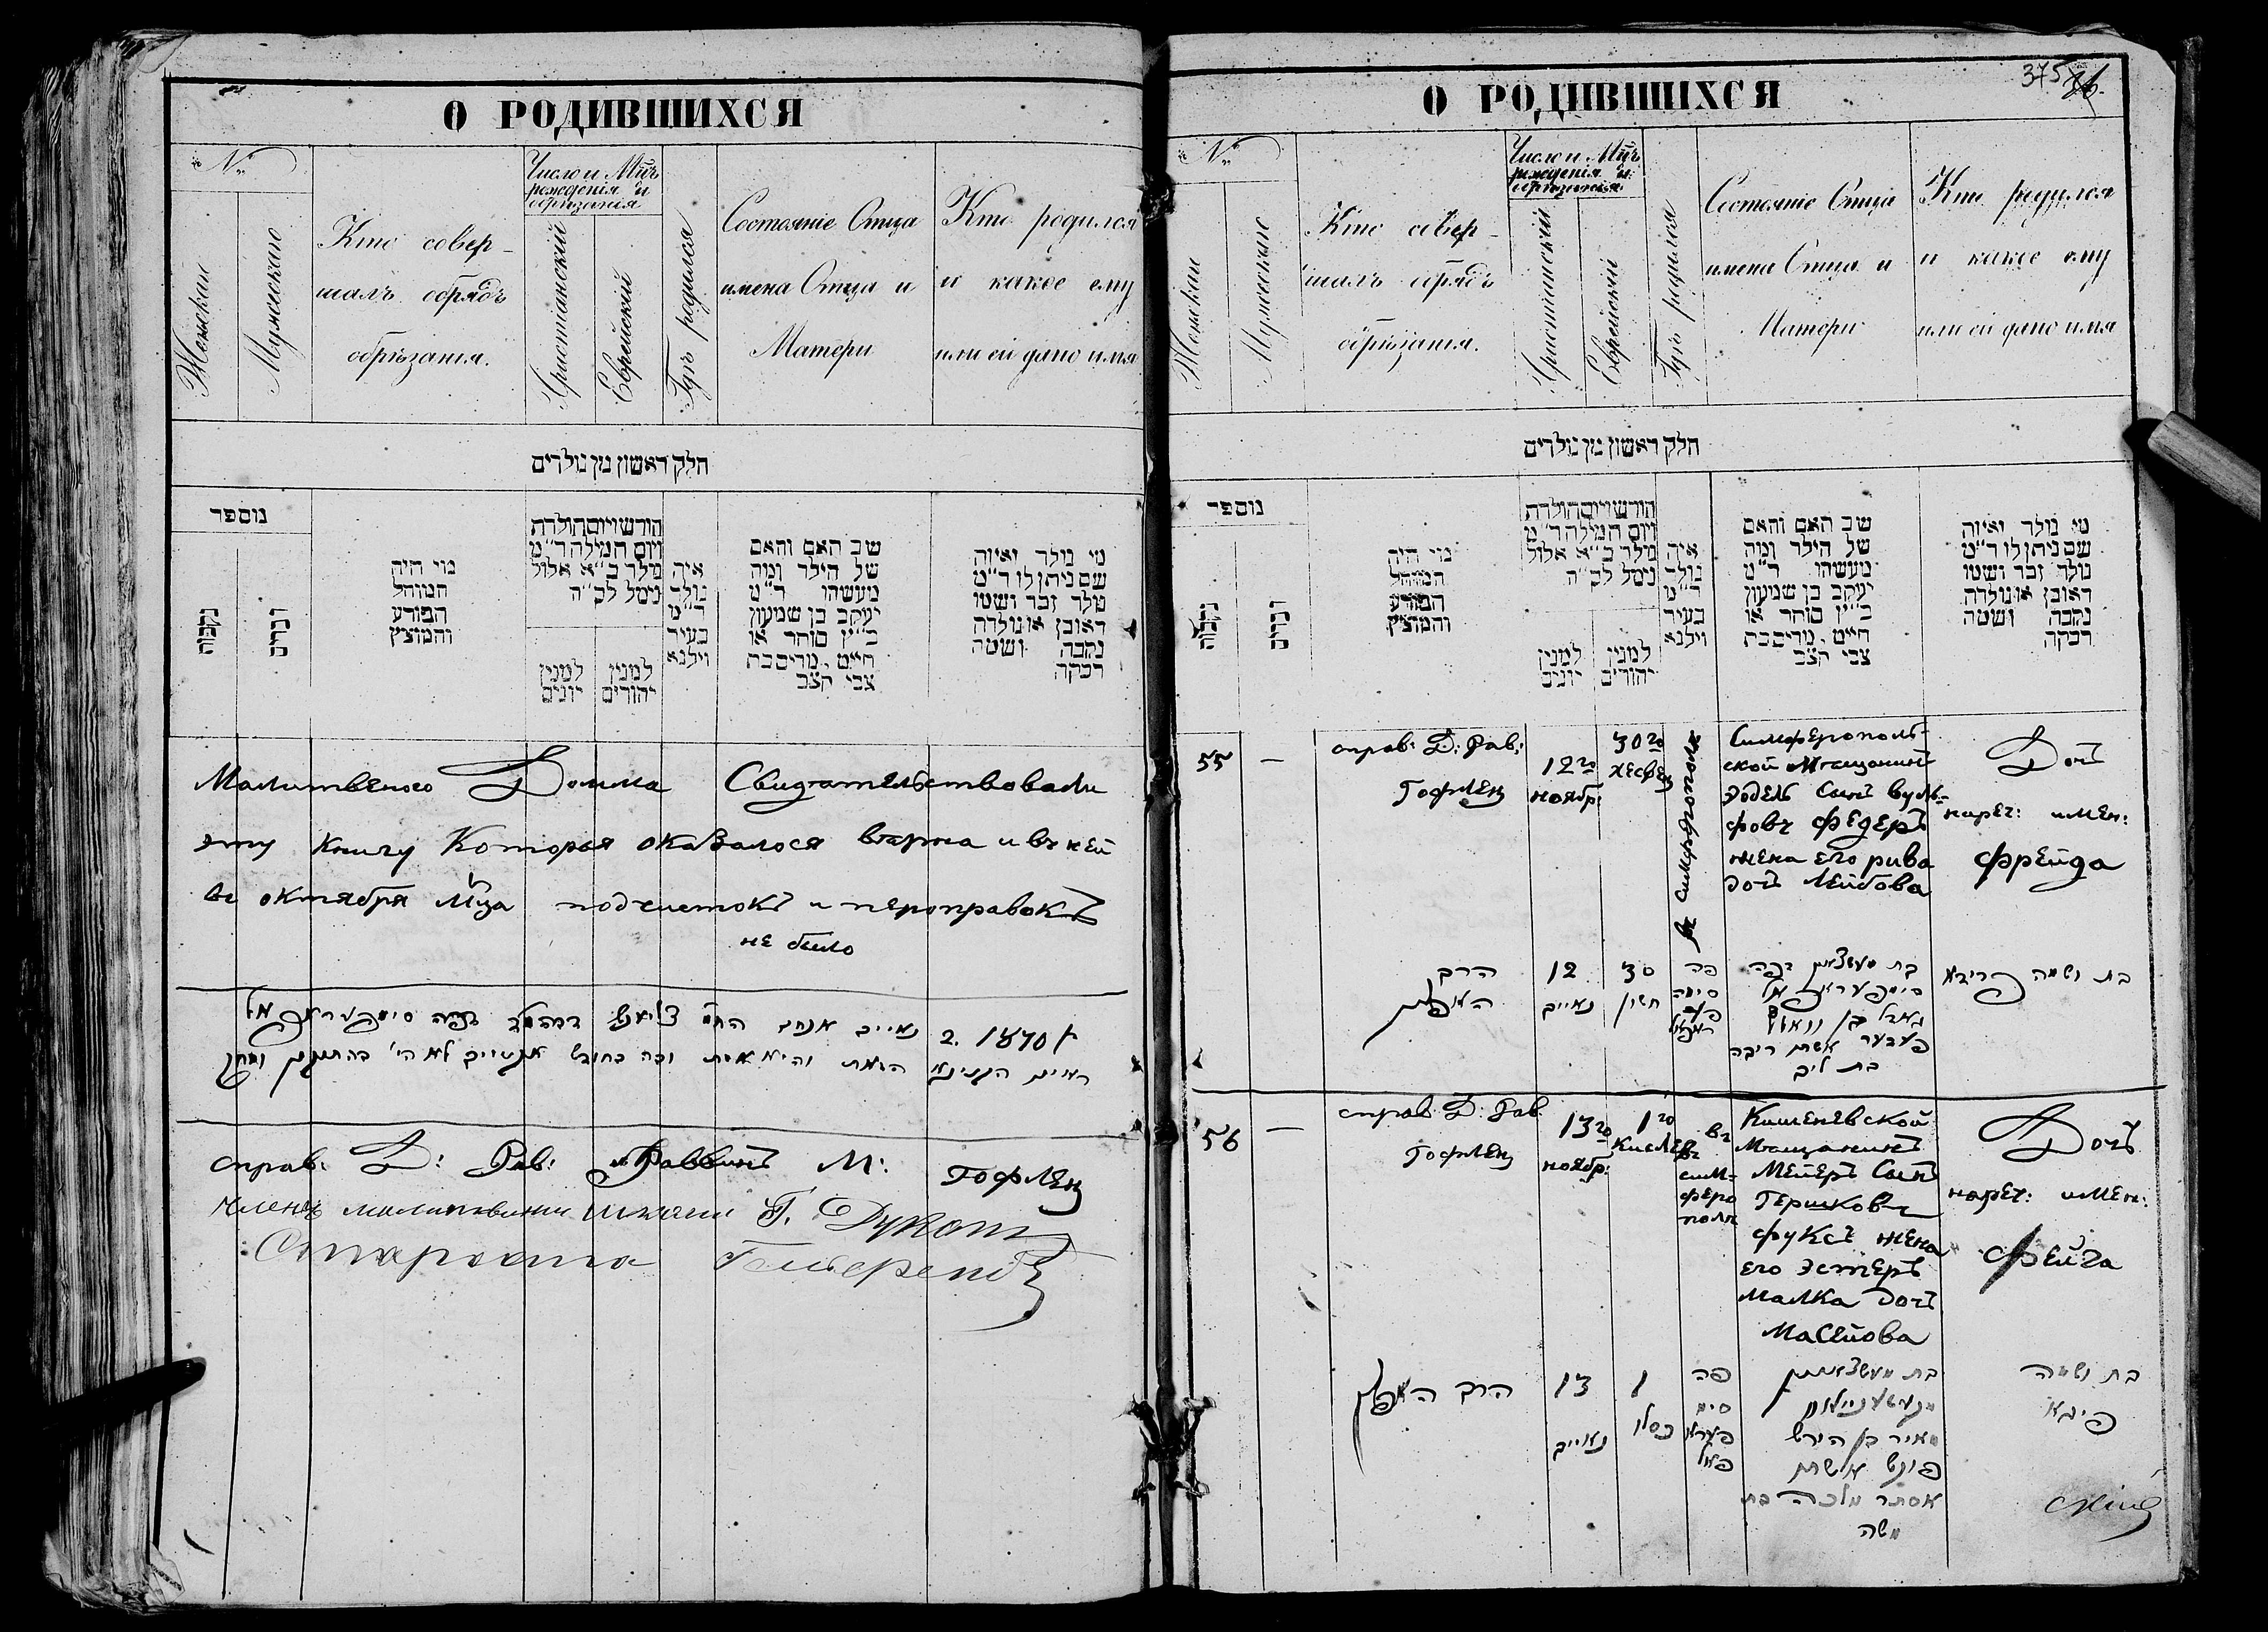 О РОДИВШИХСЯ
№
Женскаго
Мужескаго
Кто совер-
шалъ обрядъ
обрѣзанія.
Число и М-цъ
рожденія и
обрѣзанія
Христіанскій
Еврейскій
Гдѣ родился
Состояніе Отца
имена Отца и
Матери
Кто родился
и какое ему
или ей дано имя
חלק ראשון מן נולדים
נוספר
נקבות
זכרים
מי היה
המוהל
הפורע
והמוצץ
חודש ויום הולדת
ויום המילה ד"מ
נולד כ"א אלול
נימל לכ"ה
למנין
יונים
למנין
יהודים
איה
נולד
ד"מ
בעיר
וילנא
שב האם והאם
של הילד ומה
מעשהו ד"מ
יעקב בן שמעון
כ"ץ סוחר או
חייט, מרים בת
צבי קצב
מי נולד ואיזה
שם ניתן לו ד"מ
נולד זכר ושמו
ראובן או נולדה
נקבה ושמה
רבקה
Малитвеного Домма Свидѣтельствовали
эту книгу Которая оказалося вѣрна и въ ней
въ октября М-ца подчистокъ и пероправокъ
не было
2. 1870
справ: Д: Рав: Раввинъ М: Гофленц
Членъ школи Г. Дукат
Староста
О РОДИВШИХСЯ
375
№
Женскаго
Мужескаго
Кто совер-
шалъ обрядъ
обрѣзанія.
Число и М-цъ
рожденія и
обрѣзанія
Христіанскій
Еврейскій
Гдѣ родился
Состояніе Отца
имена Отца и
Матери
Кто родился
и какое ему
или ей дано имя
חלק ראשון מן נולדים
נוספר
נקבות
זכרים
מי היה
המוהל
הפורע
והמוצץ
חודש ויום הולדת
ויום המילה ד"מ
נולד כ"א אלול
נימל לכ"ה
למנין
יונים
למנין
יהודים
איה
נולד
ד"מ
בעיר
וילנא
שב האם והאם
של הילד ומה
מעשהו ד"מ
יעקב בן שמעון
כ"ץ סוחר או
חייט, מרים בת
צבי קצב
מי נולד ואיזה
שם ניתן לו ד"מ
נולד זכר ושמו
ראובן או נולדה
נקבה ושמה
רבקה
55 —
справ: Д: Рав:
Гофленц
12го
ноябр:
30го
хесвец
въ Симферополя
Симферополь-
ской мѣщанинъ
Эодель Сынъ Вуль-
фовъ Федеръ
жена его рива
дочъ Лейбова
Дочъ
нареч: имен:
Фрейда
הרב
12
נאייב
30
חשון
פה
סימפ
בת
בת ליב
בת ושמה פריידא
56 —
справ Д: Рав
Гофленц
13го
ноябр:
1го
Кислев
въ
сим-
феро
поля
Кишеневской
Мѣщанинъ
Мейеръ Сынъ
Гершковъ
Фуксъ жена
его Эстеръ
Малка дочъ
Масейова
Дочъ
нареч: имен:
Фейга
הרב
13
נאייב
1
כסלו
פה
סימ
פערא
פאל
בת
מאיר בן הירש
פוקס אשתו
אסתר מלכה בת
משה
בת ושמה
פייגא